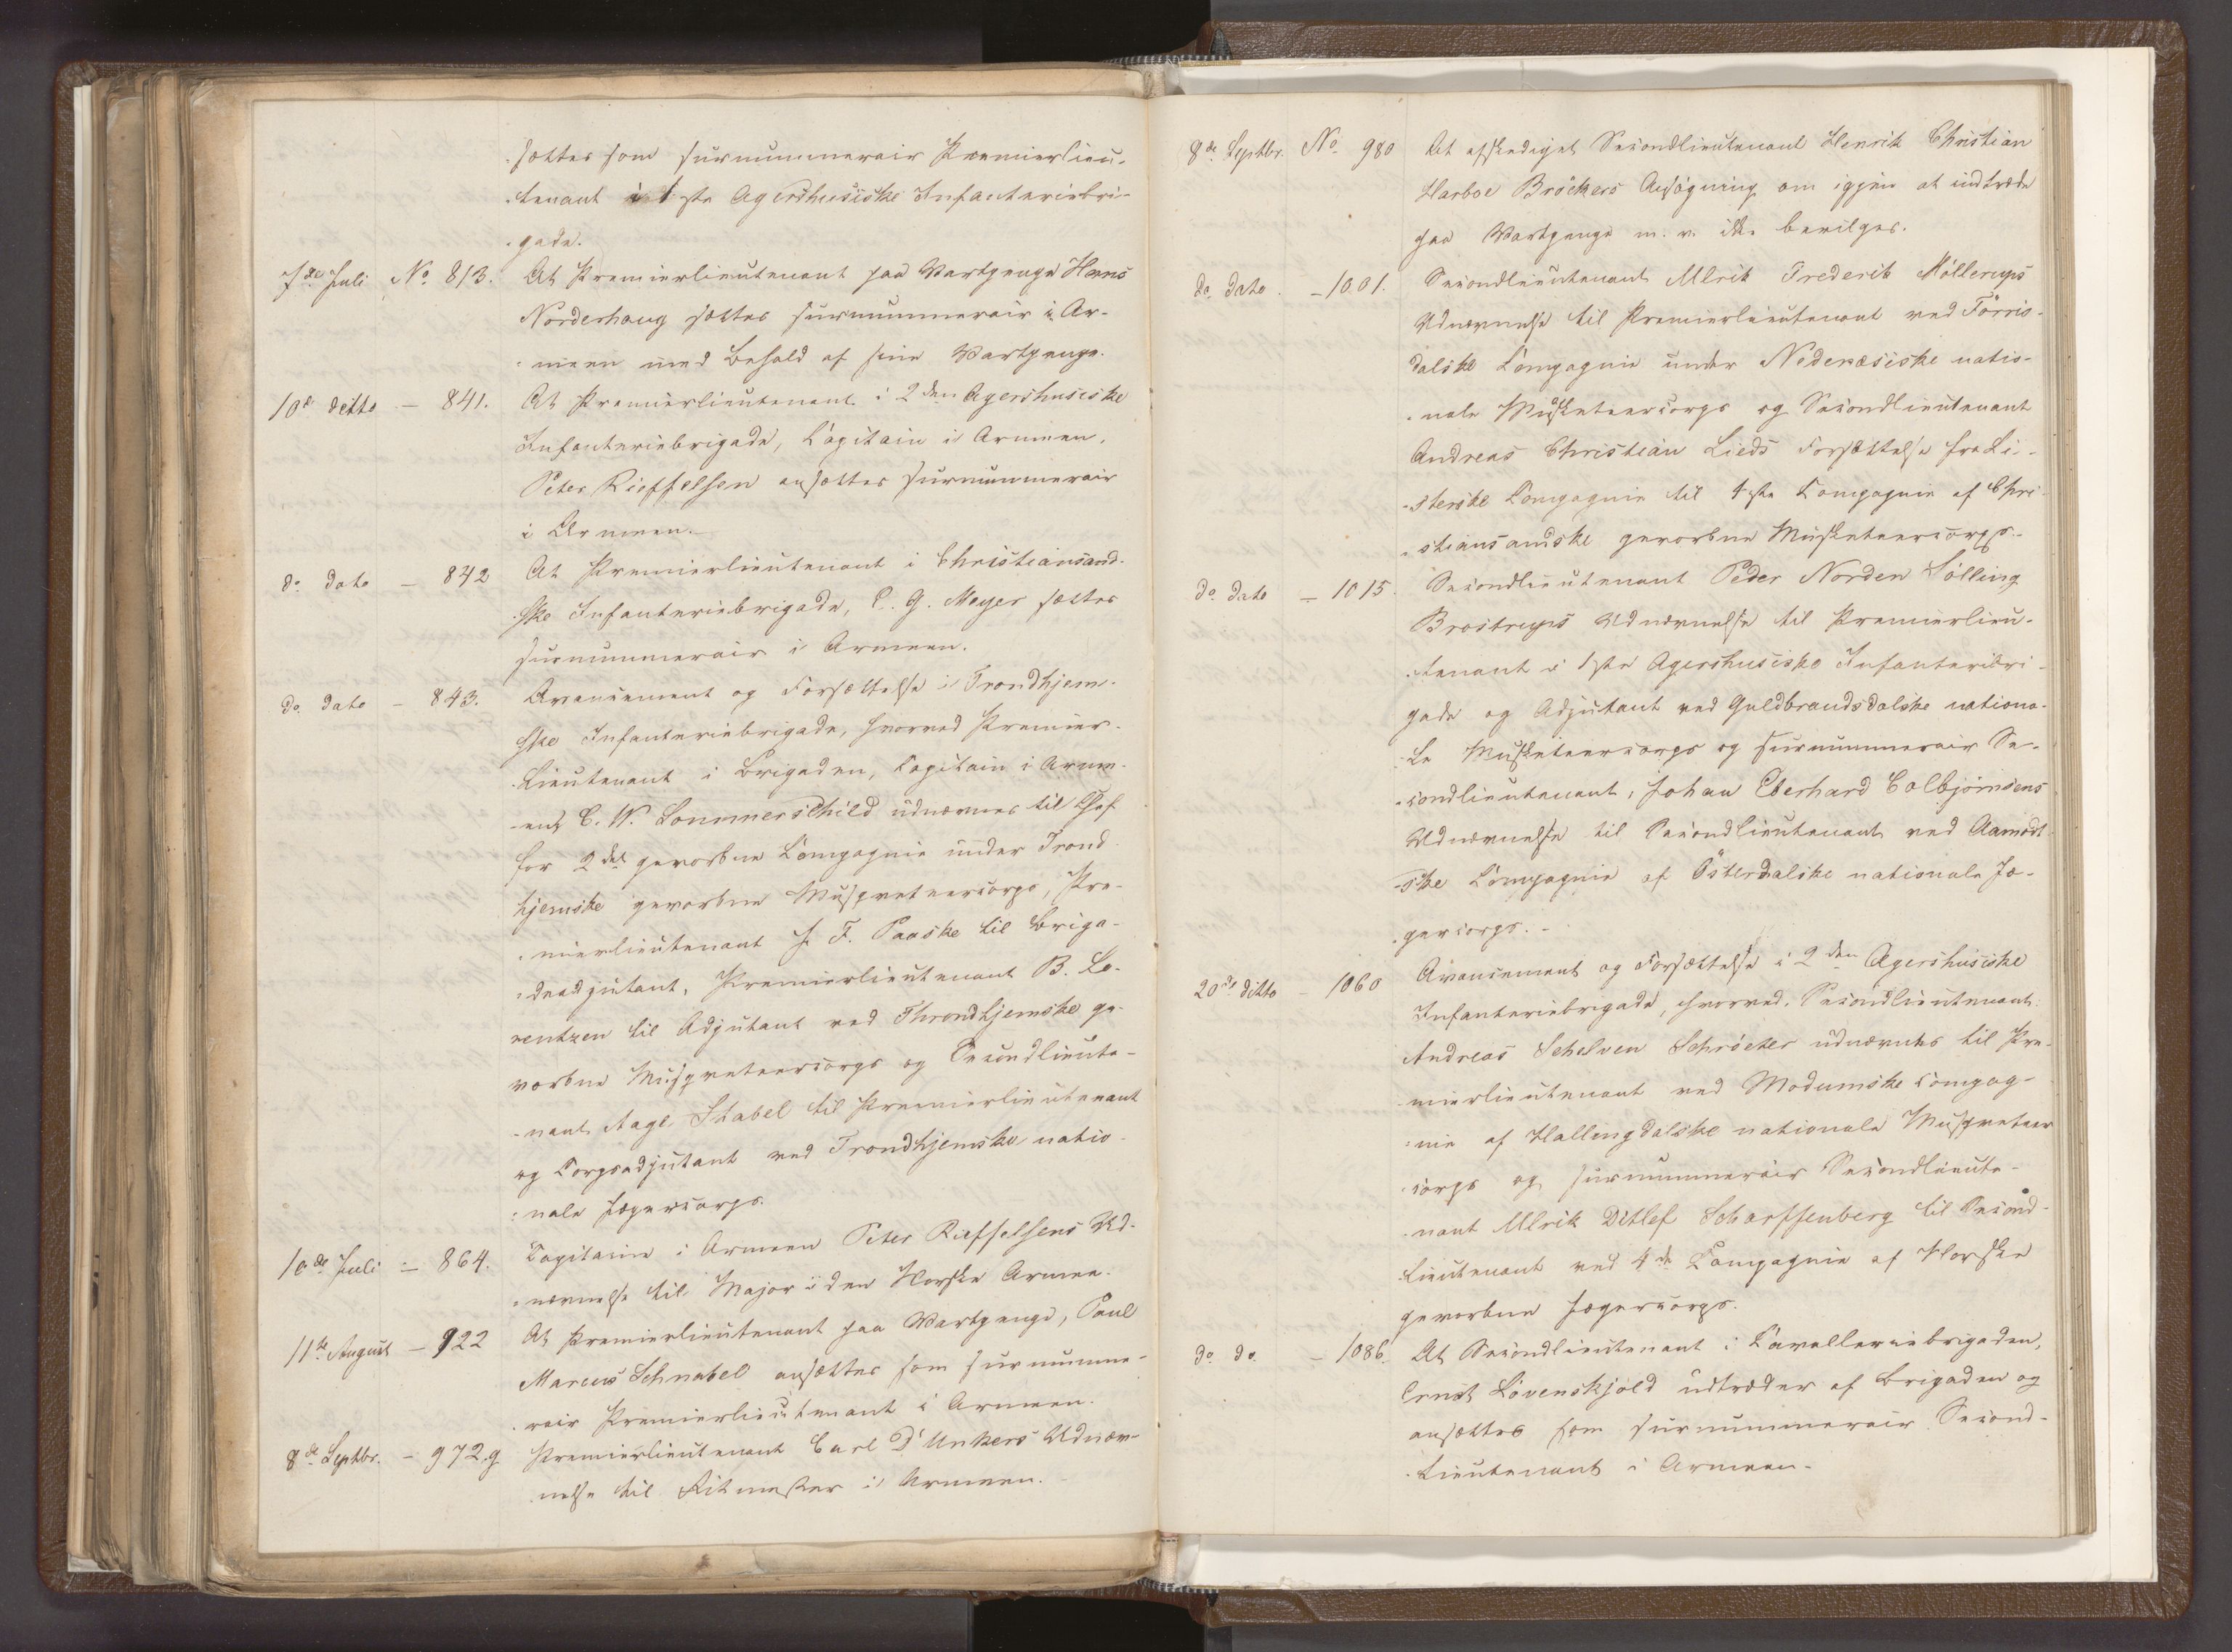 sættes som surnummerair Premierlieu-
tenant i 1ste Agershusiske Infanteriebri-
gade.
7de Juli No 813. At Premierlieutenant paa Vartpenge Hans
Norderhaug sættes surnummerair i Ar-
meen med Behold af sine Vartpenge.
10de ditto — 841. At Premierlieutenant i 2den Agershusiske
Infanteriebrigade, Capitain i Armeen,
Peter Rieffelsen ansættes surnummerair
i Armeen.
do dato — 842 At Premierlieutenant i Christiansand-
ske Infanteriebrigade, C. G. Meyer sættes
surnummerair i Armeen.
do dato — 843. Avancement og Forsættelse i Trondhjem-
ske Infanteriebrigade, hvorved Premier-
Lieutenant i Brigaden, Capitain i Arme-
en C. W. Lommerschild udnævnes til Chef
for 2det gevorbne Compagnie under Trond-
hjemske gevorbne Musqveteercorps, Pre-
mierlieutenant J. F. Paaske til Briga-
deadjutant, Premierlieutenant B. Lo-
rentzen til Adjutant ved Throndhjemske ge-
vorbne Musqveteercorps og Secondlieute-
nant Aage Stabel til Premierlieutenant
og Corpsadjutant ved Trondhjemske natio-
nale Jægercorps.
10de Juli — 864. Capitaine i Armeen Peter Rieffelsens Ud-
nævnelse til Major i den Norske Armee.
11te August — 922 At Premierlieutenant paa Vartpenge, Paul
Marcus Schnabel ansættes som surnumme-
rair Premierlieutenant i Armeen.
8de Septbr. — 972.g Premierlieutenant Carl D'Unkers Udnæv-
nelse til Ritmester i Armeen.
8de Septbr. No 980 At afskediget Secondlieutenant Henrik Christian
Harboe Bröckers Ansögning om igjen at indtræde
paa Vartpenge m. v. ikke bevilges.
do dato. — 1001. Secondlieutenant Ulrik Frederik Möllerups
Udnævnelse til Premierlieutenant ved Förris-
dalske Compagnie under Nedenæsiske natio-
nale Musketeercorps og Secondlieutenant
Andreas Christian Lieds Forsættelse fra Li-
sterske Compagnie til 1ste Compagnie af Chri-
stiansandske gevorbne Musketeercorps.
do dato — 1015. Secondlieutenant Peder Norden Sölling
Brostrups Udnævnelse til Premierlieu-
tenant i 1ste Agershusiske Infanteriebri-
gade og Adjutant ved Guldbrandsdalske nationa-
le Musketeercorps og surnummerair Se-
condlieutenant, Johan Eberhard Colbjörnsens
Udnævnelse til Secondlieutenant ved Aamodt-
ske Compagnie af Österdalske nationale Jæ-
gercorps.
20de ditto — 1060 Avancement og Forsættelse i 2den Agershusiske
Infanteriebrigade, hvorved Secondlieutenant
Andreas Schelven Schröeter udnævnes til Pre-
mierlieutenant ved Modumske Compag-
nie af Hallingdalske nationale Musqveteer
corps og surnummerair Secondlieute-
nant Ulrik Ditlef Scharffenberg til Second-
Lieutenant ved 4de Compagnie af Norske
gevorbne Jægercorps.
do do. — 1086. At Secondlieutenant i Cavalleriebrigaden,
Ernst Lövenskjold udtræder af Brigaden og
ansættes som surnummerair Second-
Lieutenant i Armeen.